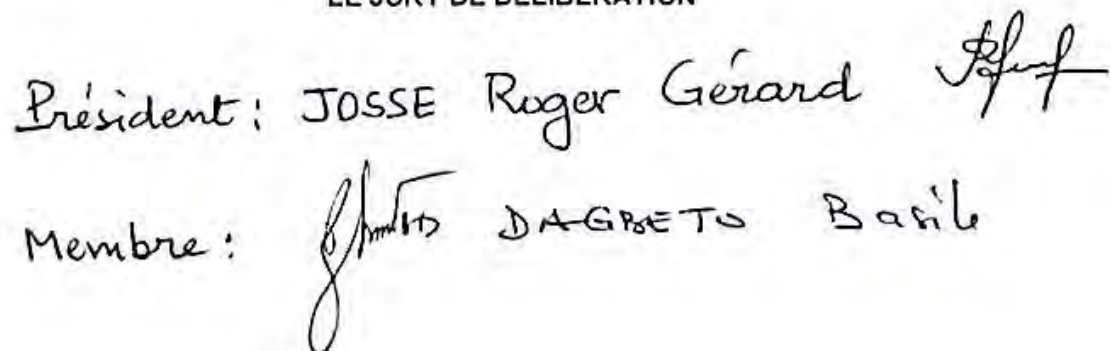 LE JURY DE DELIBERATION
Président : JOSSE Roger Gérard
Membre : DAGBETO Basile